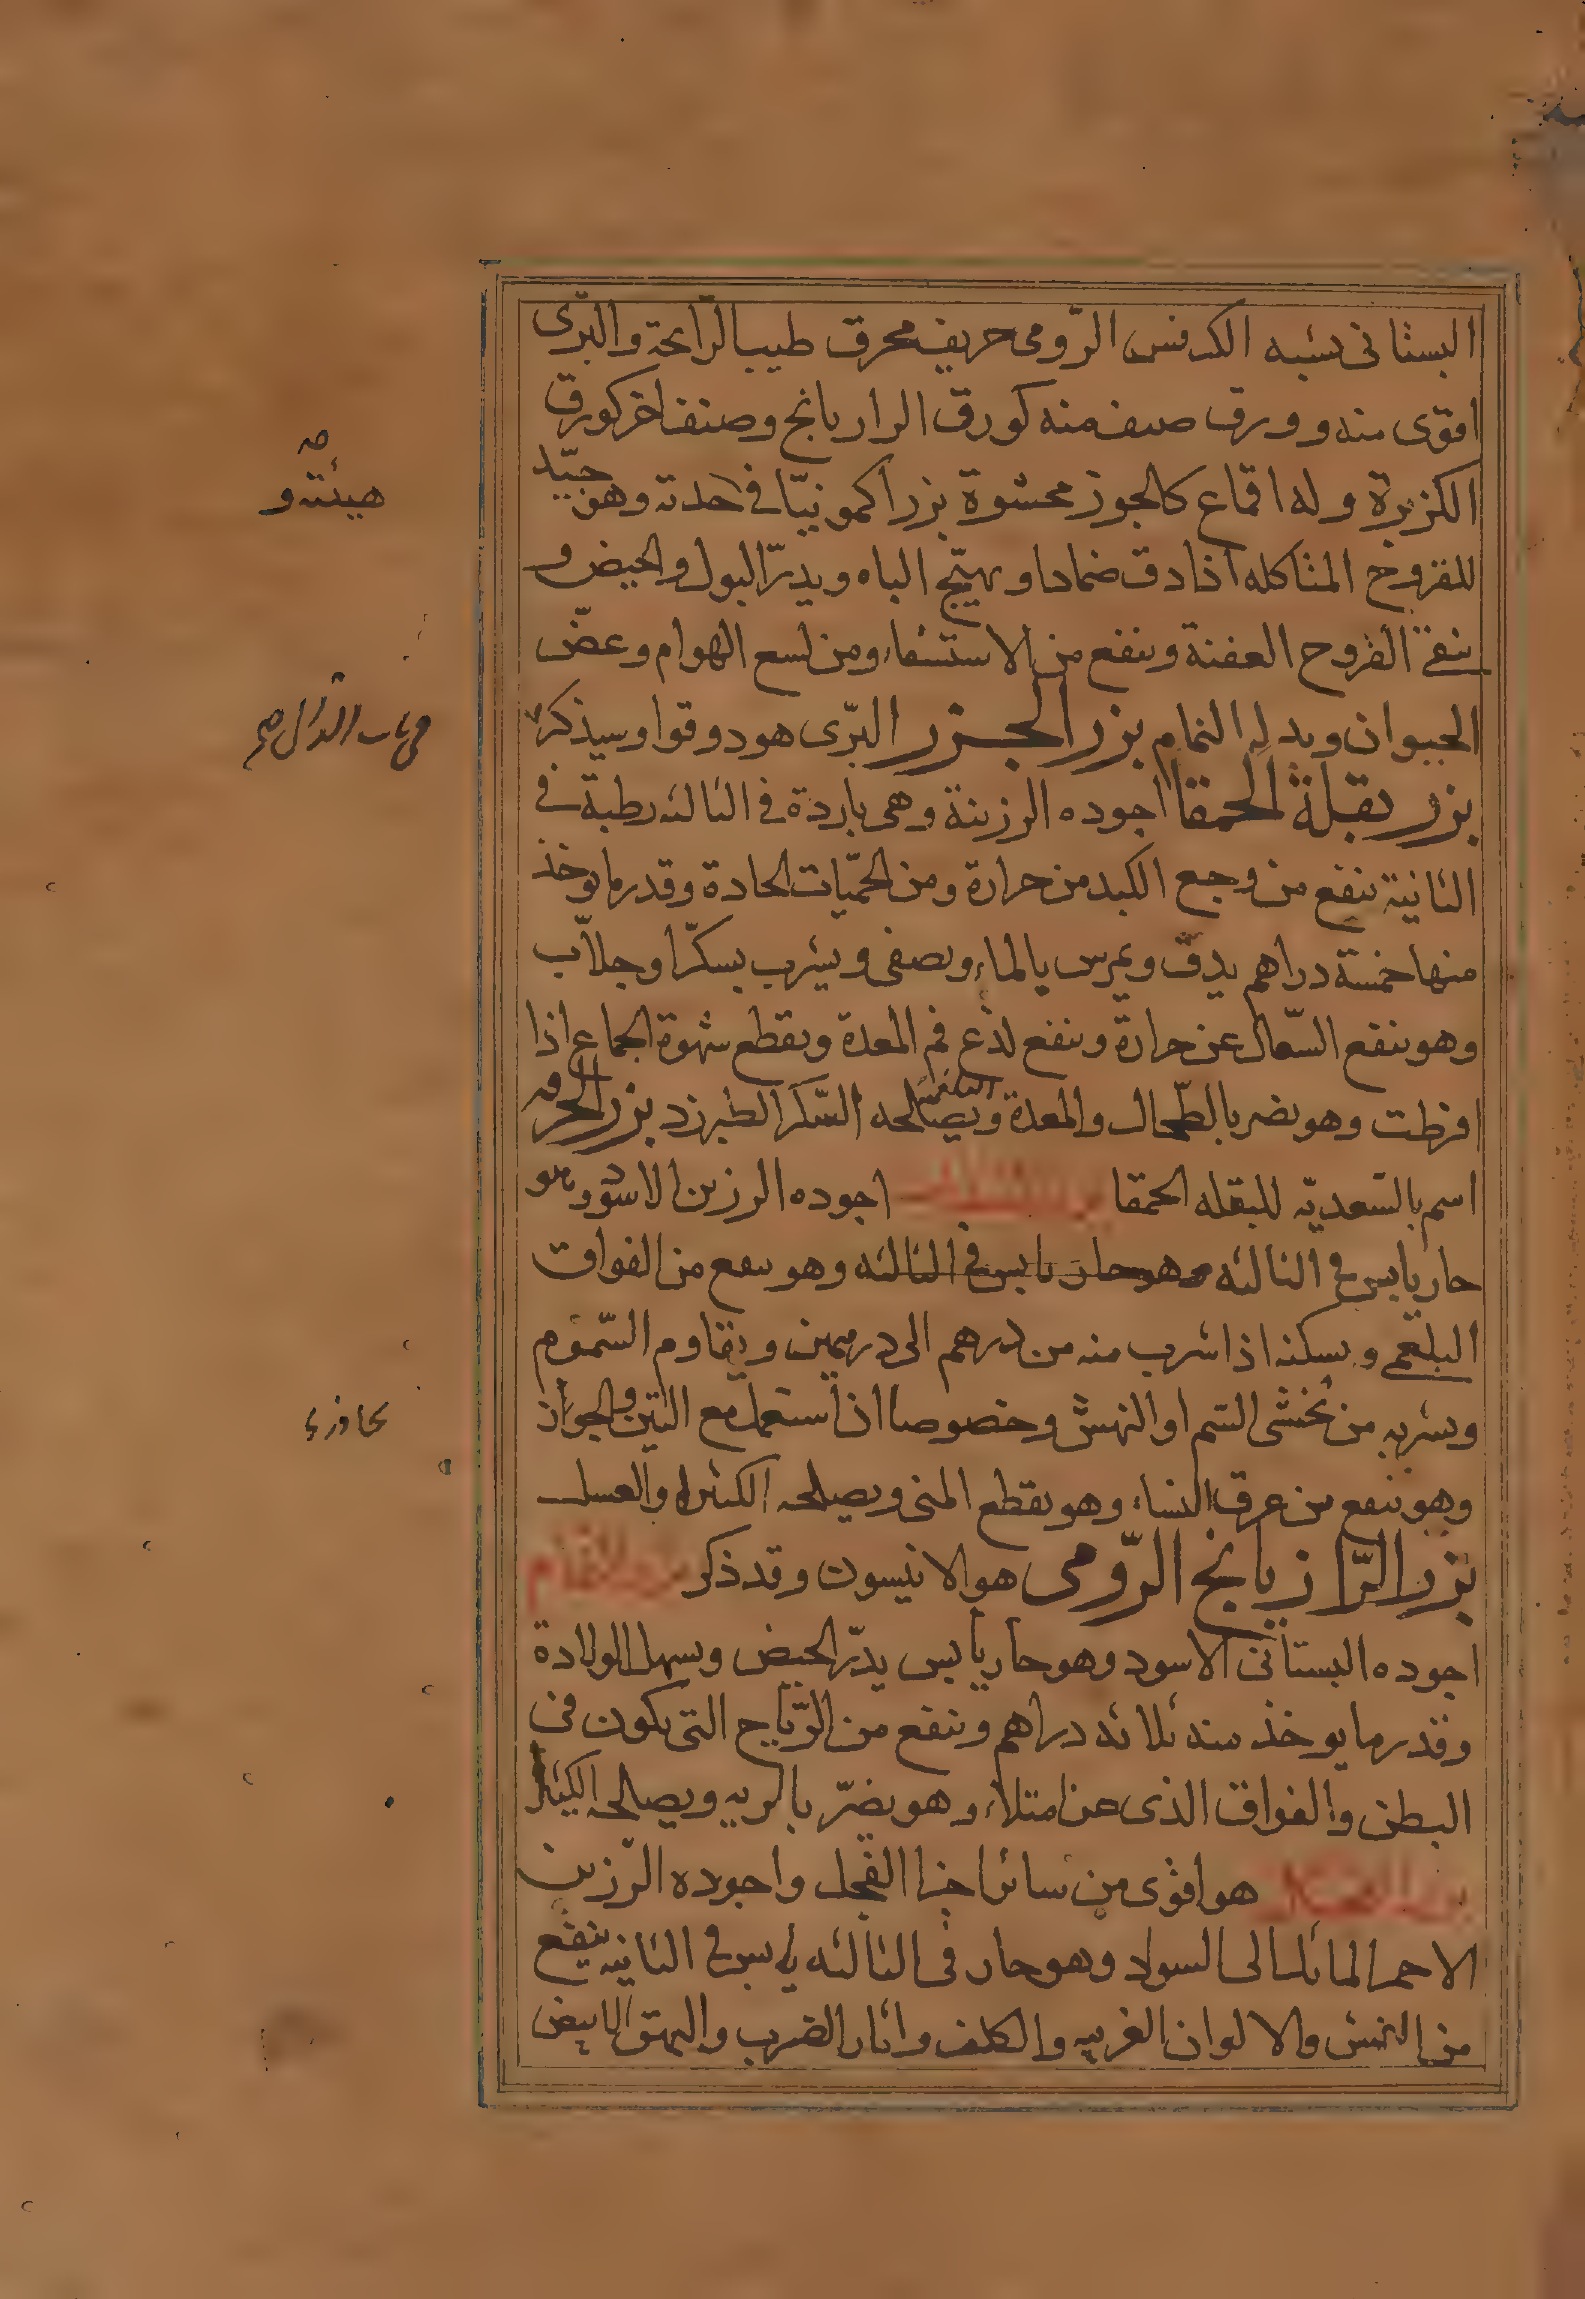 البستانى يشبه الكرفس الرّومى حريف محرق طيب الرّايحة والبرّى
اقوى منه وورق صنف منه كورق الرازيانج وصنف اخر كورق
الكزبرة وله اقماع كالجوز محشوة بزرا كمونيّا فى حدته وهو جيّد
هيئته و
للقروح المتاكله اذا دق ضمادا ويهيّج الباه ويدرّ البول والحيض و
ينقى القروح العفنة وينفع من الاستسقاء ومن لسع الهوام وعضّ
الحيوان وبدله النمام بزر الجزر البرّى هو دوقوا وسيذكر
فى باب الدال صح
بزر بقلة الحمقا اجوده الرزينة وهى باردة فى الثالثه رطبة فى
الثانية ينفع من وجع الكبد من حرارة ومن الحمّيات الحادة وقدر ما يوخذ
منها خمسة دراهم يدقّ ويمرس بالماء ويصفى ويشرب بسكّر او جلاّب
وهو ينفع السّعال عن حرارة وينفع لذع فم المعدة ويقطع شهوة الجماع اذا
افرطت وهو يضر بالطّحال والمعدة ويصلحه السّكر الطبرزد بزر الخرفه
اسم بالسّعديّه للبقله الحمقا اجوده الرزين الاسود وهو
حار يابس فى الثالثه وهو حار يابس فى الثالثه وهو ينفع من الفواق
البلغمى ويسكنه اذا شرب منه من درهم الى درهمين ويقاوم السّموم
ويشربه من يخشى السّم او النهش وخصوصا ان استعمل مع التين والجوز
وهو ينفع من عرق النساء وهو يقطع المنى ويصلحه الكثيرا والعسل
بزر الرّازيانج الرّومى هو الانيسون وقد ذكر
اجوده البستانى الاسود وهو حار يابس يدرّ الحيض ويسهل الولادة
وقدر ما يوخذ منه ثلاثه دراهم وينفع من الرّياح التى يكون فى
البطن والفواق الذى عن امتلاء وهو يضرّ بالريه ويصلحه الكثيرا
بزر الفجل هو اقوى من سائر اجزا الفجل واجوده الرّزين
الاحمر المائل الى السواد وهو حار فى الثالثه يابس فى الثانيه ينفع
من النمش والالوان الغريبه والكلف واثار الضرب والبهق الابيض